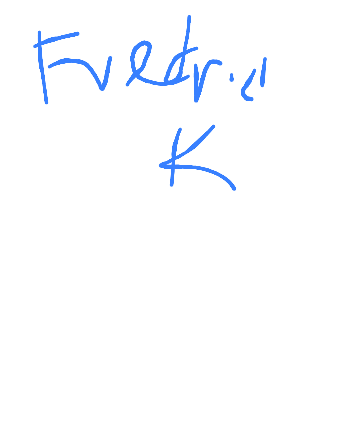 Fredric
K